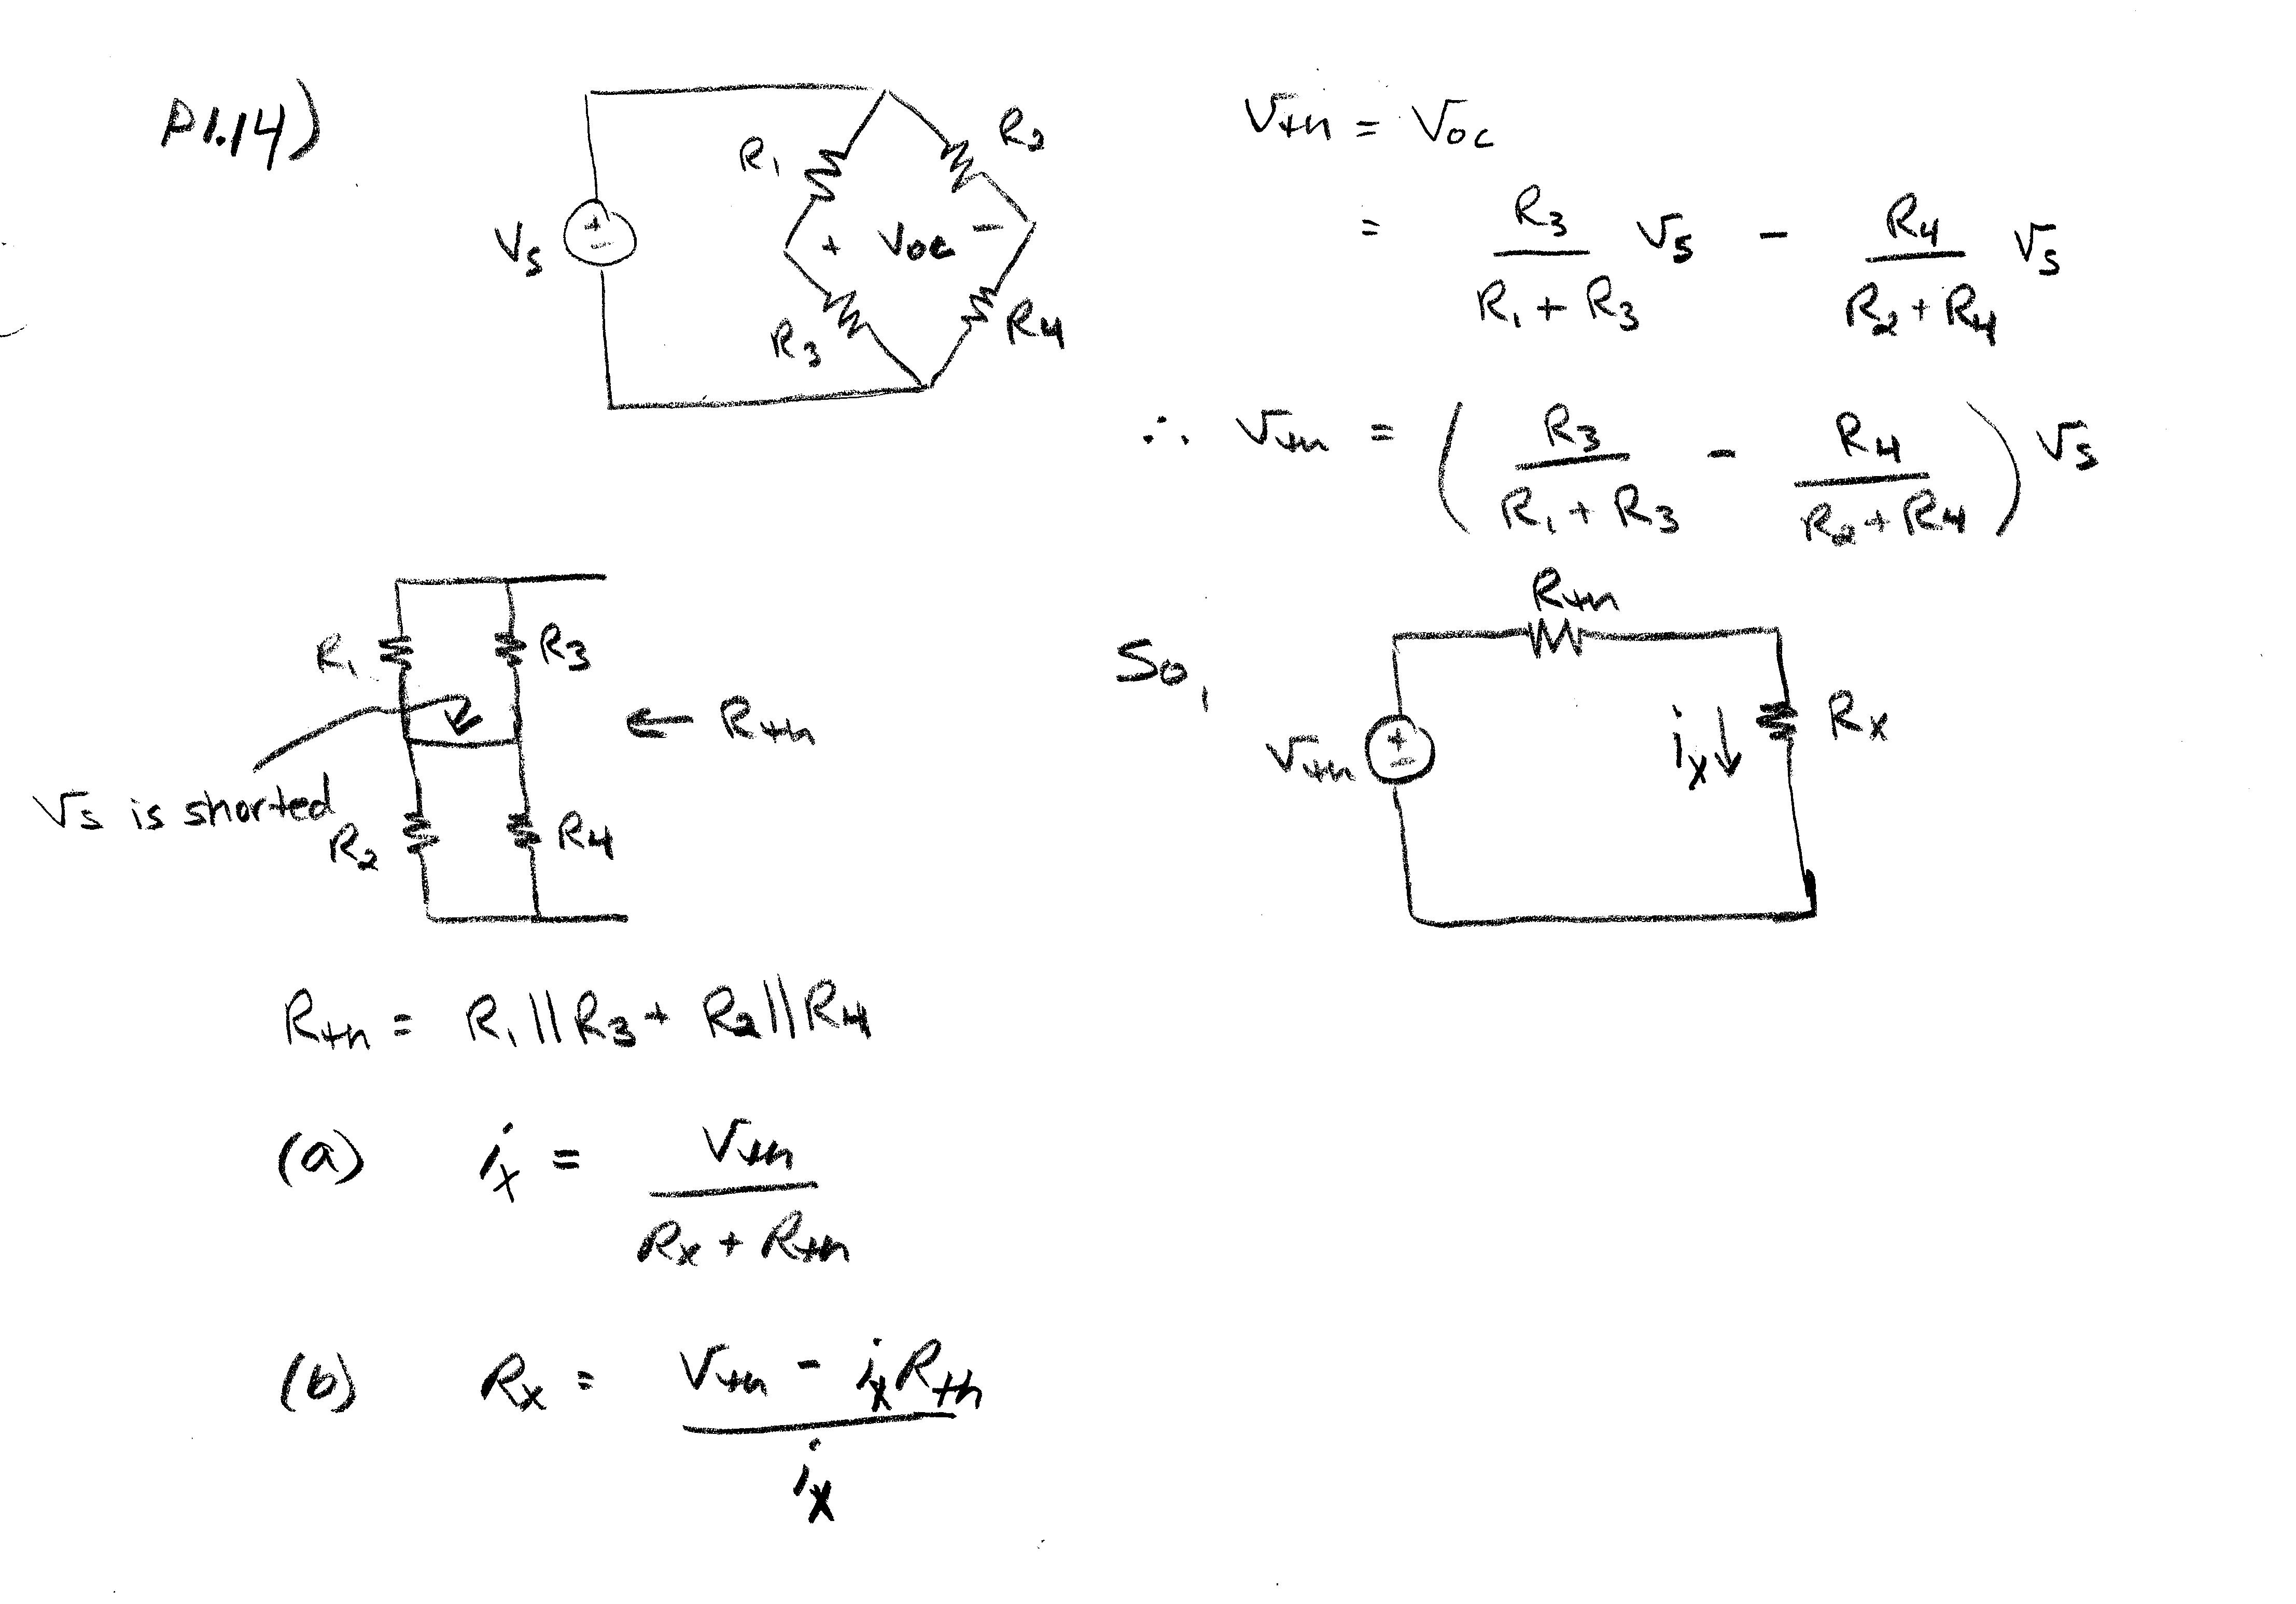 P1.14)
Vs
+
-
R1
R2
+ Voc -
R3
R4
Vth = Voc
= R3 / (R1 + R3) Vs - R4 / (R2 + R4) Vs
∴ Vth = ( R3 / (R1 + R3) - R4 / (R2 + R4) ) Vs
R1
R3
← Rth
Vs is shorted
R2
R4
So,
Rth
Vth
+
-
ix ↓
Rx
Rth = R1 || R3 + R2 || R4
(a) ix = Vth / (Rx + Rth)
(b) Rx = (Vth - ix Rth) / ix